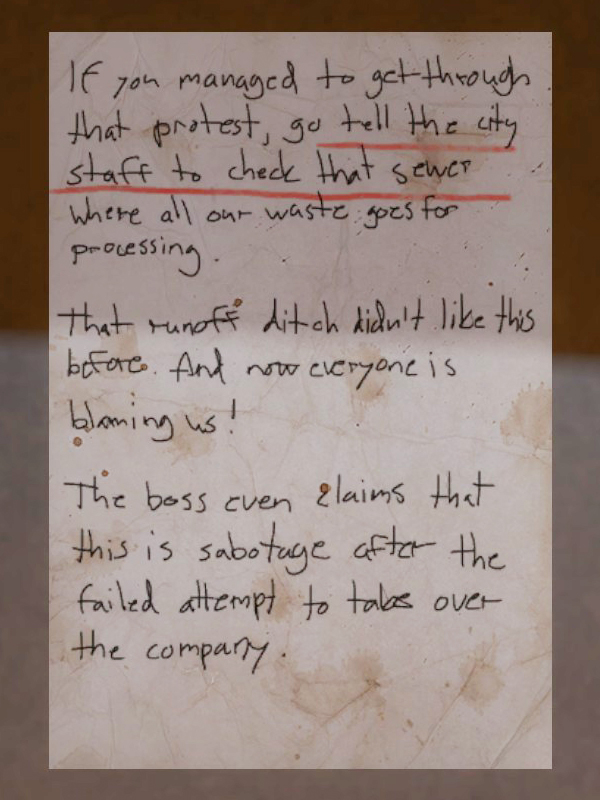 If you managed to get through
that protest, go tell the city
staff to check that sewer
where all our waste goes for
processing.
That runoff ditch didn't like this
before. And now everyone is
blaming us!
The boss even claims that
this is sabotage after the
failed attempt to take over
the company.